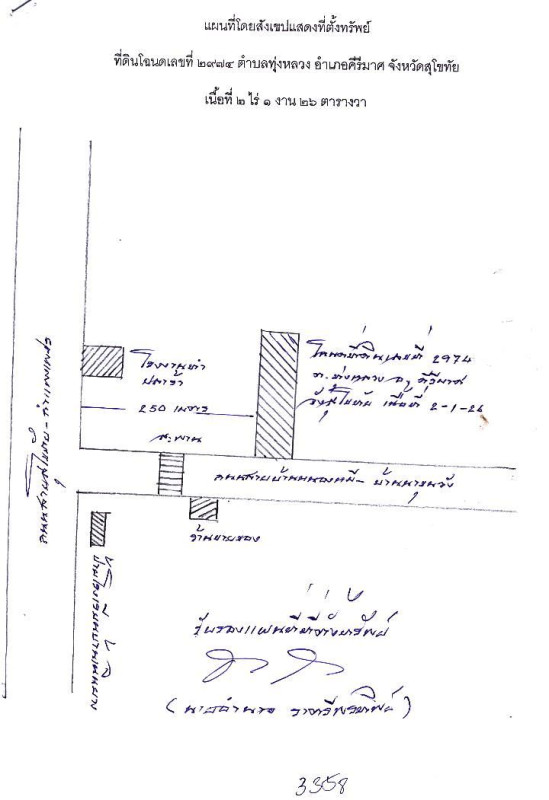 แผนที่โดยสังเขปแสดงที่ตั้งทรัพย์
ที่ดินโฉนดเลขที่ ๒๙๗๔ ตำบลทุ่งหลวง อำเภอคีรีมาศ จังหวัดสุโขทัย
เนื้อที่ ๒ ไร่ ๑ งาน ๒๖ ตารางวา
โรงงานทำ
ปลาร้า
250 เมตร
สะพาน
โฉนดที่ดินเลขที่ 2974
ต.ทุ่งหลวง อ.คีรีมาศ
จ.สุโขทัย เนื้อที่ 2-1-26
ถนนสายสุโขทัย-กำแพงเพชร
ถนนสายบ้านหนองหมี-บ้าน
ร้านขายของ
รับรองแผนที่ที่ตั้งทรัพย์
3358